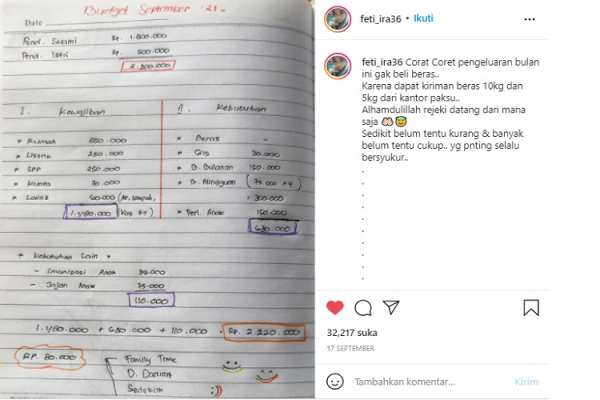 Budget September '21
Date
Pend. Suami Rp. 1.800.000
Pend. Istri Rp. 500.000
2.300.000
I. Kewajiban II. Kebutuhan
Beras -
Listrik 250.000 Gas 30.000
SPP 250.000 B. Bulanan 150.000
B. Mingguan (75.000 x4)
= 300.000
Anak 150.000
1.480.000 630.000
* Kebutuhan Lain *
- Imunisasi Anak
- Jajan Anak
110.000
1.480.000 + 630.000 + 110.000 = Rp. 2.220.000
RP. 80.000
Family Time
D. Darurat
Sedekah
feti_ira36 • Ikuti
feti_ira36 Corat Coret pengeluaran bulan
ini gak beli beras..
Karena dapat kiriman beras 10kg dan
5kg dari kantor paksu..
Alhamdulillah rejeki datang dari mana
saja 🤲🏻😇
Sedikit belum tentu kurang & banyak
belum tentu cukup.. yg pnting selalu
bersyukur..
.
.
.
.
.
.
.
.
32,217 suka
17 SEPTEMBER
Tambahkan komentar...
Kirim